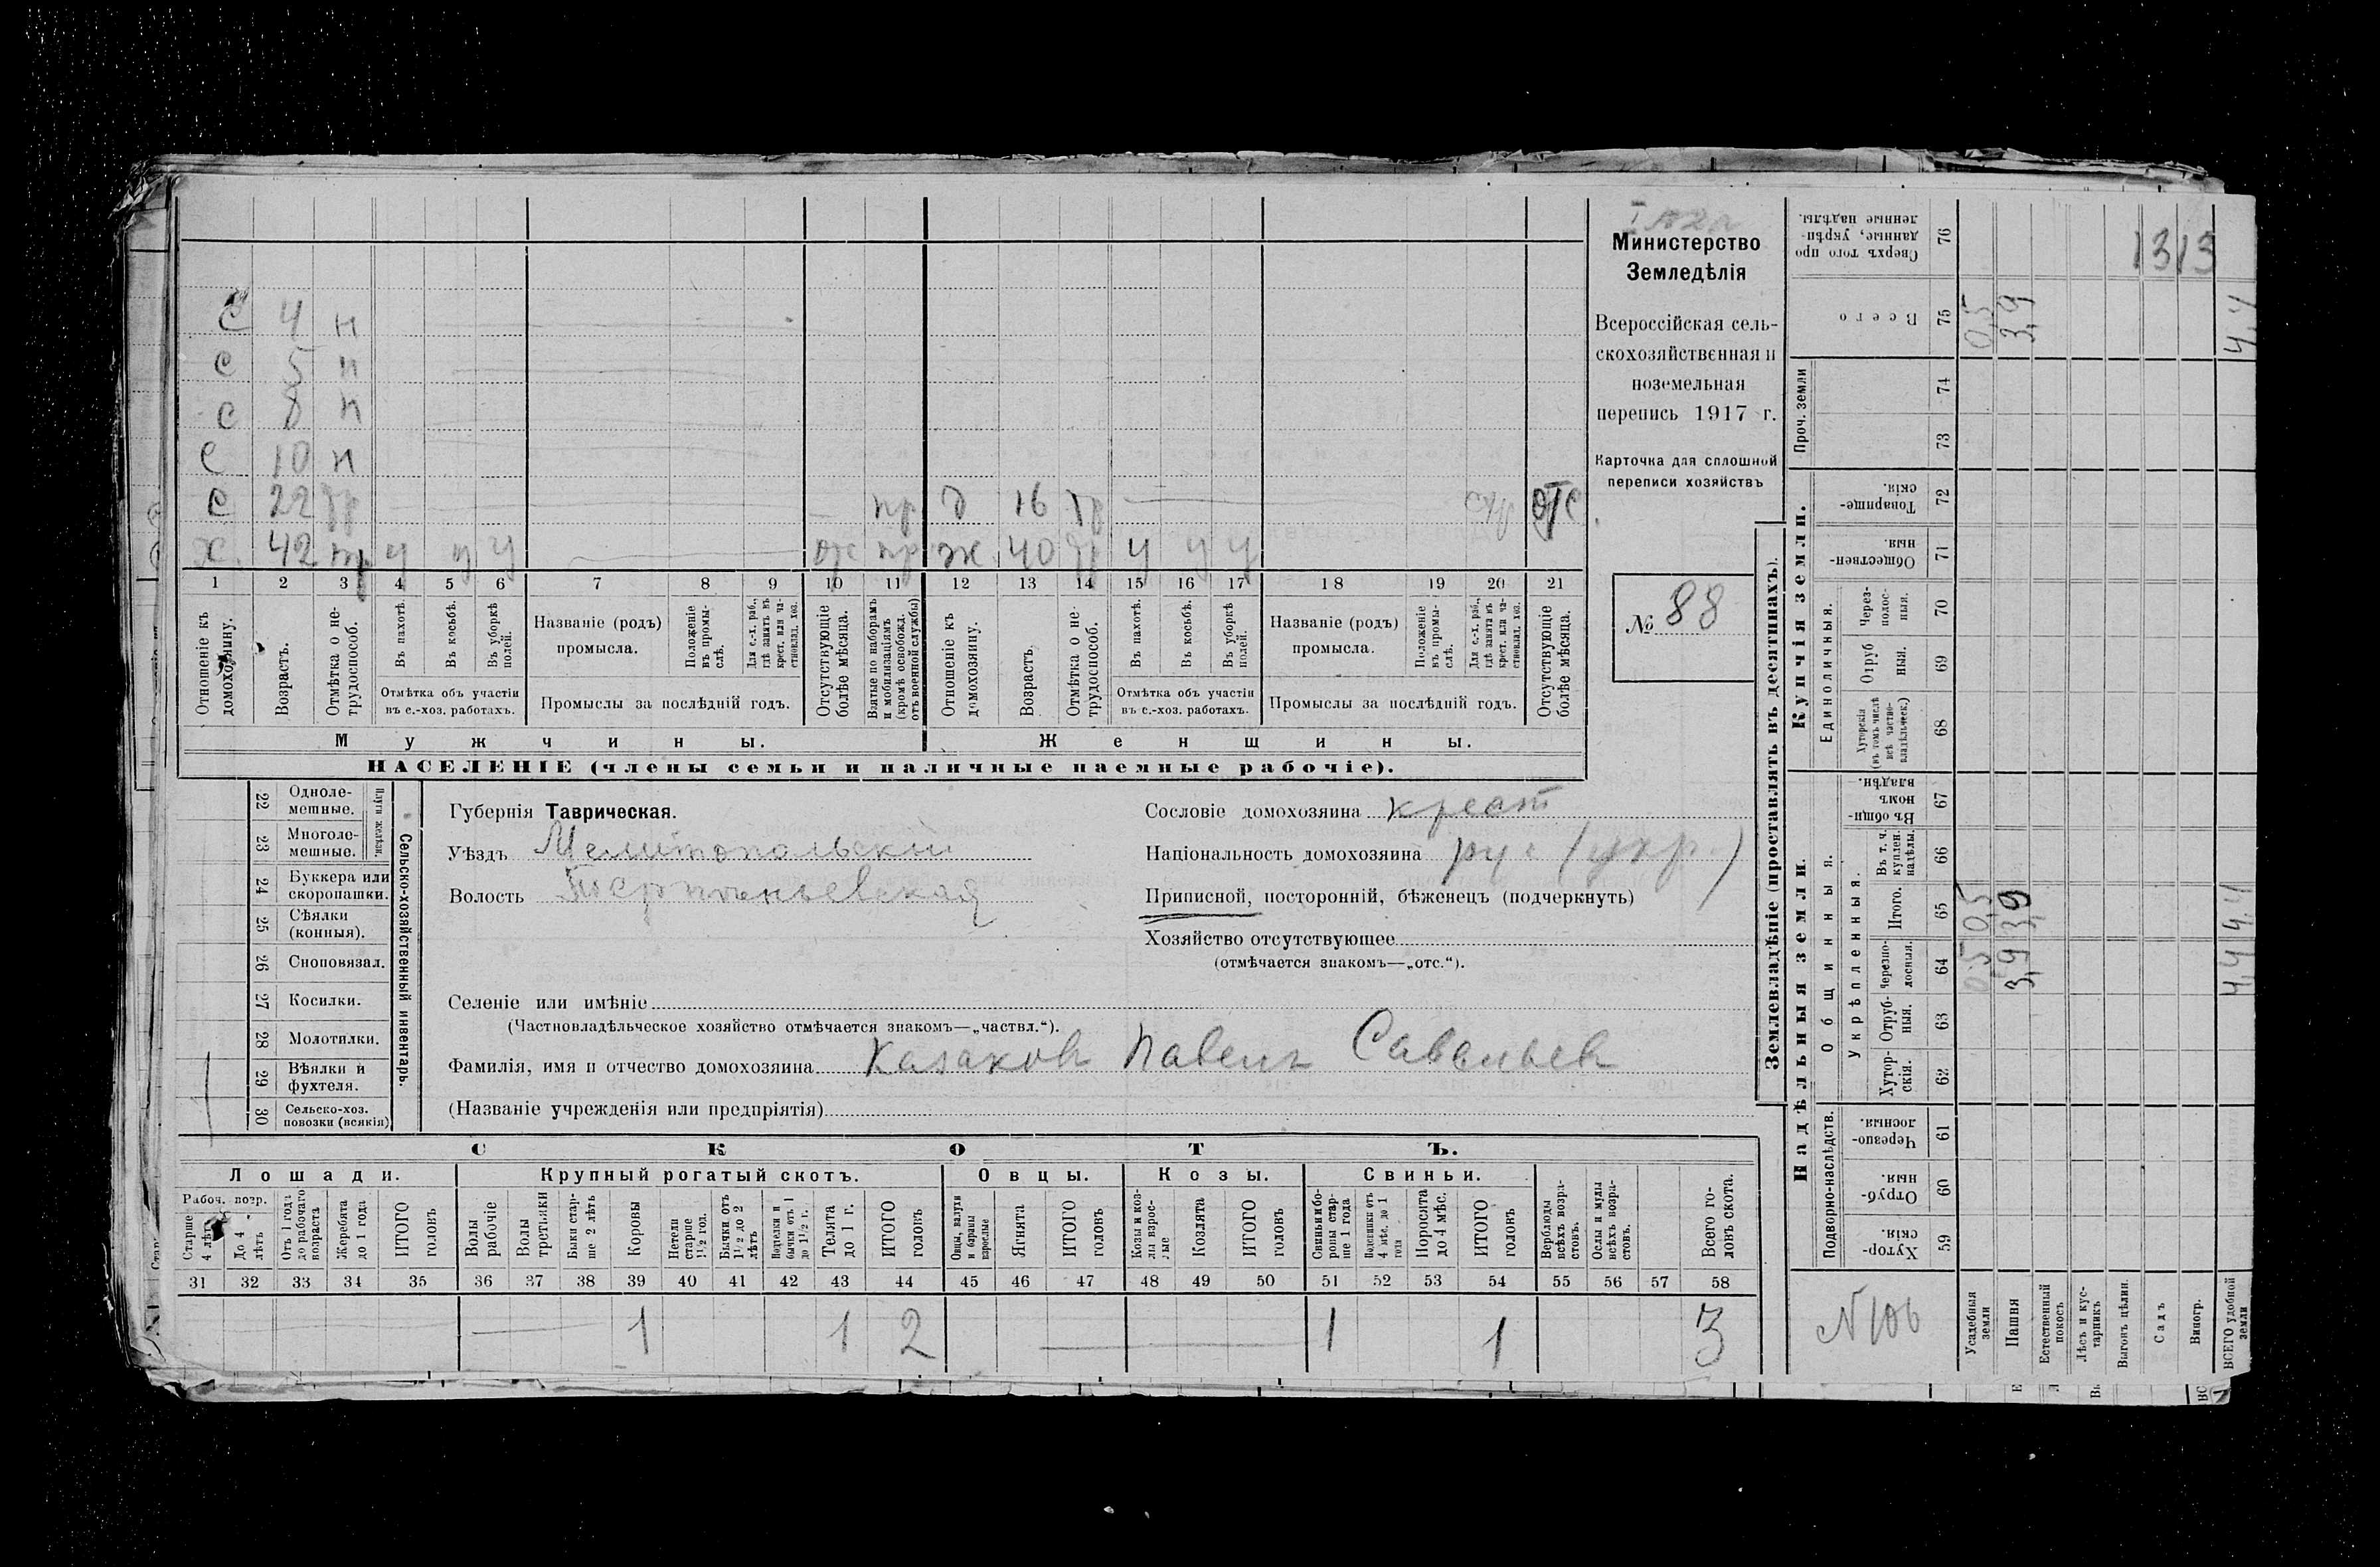 С 4 н
С 5 н
С 8 н
С 10 н
С 22 тр пр д 16 тр отс
х. 42 тр у у у от пр ж 40 тр у у у
1 2 3 4 5 6 7 8 9 10 11 12 13 14 15 16 17 18 19 20 21
Отношеніе къ домохозяину.
Возрастъ.
Отмѣтка о нетрудоспособ.
Въ пахотѣ.
Въ косьбѣ.
Въ уборкѣ полей.
Отмѣтка объ участіи въ с.-хоз. работахъ.
Названіе (родъ) промысла.
Положеніе въ промыслѣ.
Для с.-х. раб., гдѣ занятъ въ крест. или частновлад. хоз.
Промыслы за послѣдній годъ.
Отсутствующіе болѣе мѣсяца.
Взятые по наборамъ и мобилизаціямъ (кромѣ освобожд. отъ военной службы)
Отношеніе къ домохозяину.
Возрастъ.
Отмѣтка о нетрудоспособ.
Въ пахотѣ.
Въ косьбѣ.
Въ уборкѣ полей.
Отмѣтка объ участіи въ с.-хоз. работахъ.
Названіе (родъ) промысла.
Положеніе въ промыслѣ.
Для с.-х. раб., гдѣ занята въ крест. или частновлад. хоз.
Промыслы за послѣдній годъ.
Отсутствующіе болѣе мѣсяца.
Мужчины. Женщины.
НАСЕЛЕНІЕ (члены семьи и наличные наемные рабочіе).
Министерство
Земледѣлія
Всероссійская сель-
скохозяйственная и
поземельная
перепись 1917 г.
Карточка для сплошной
переписи хозяйствъ
№ 88
22 Одноле-
мешные.
23 Многоле-
мешные.
Плуги желѣзн.
24 Буккера или
скоропашки.
25 Сѣялки
(конныя).
26 Сноповязал.
27 Косилки.
28 Молотилки.
29 Вѣялки и
фухтеля.
30 Сельско-хоз.
повозки (всякія)
Сельско-хозяйственный инвентарь.
Губернія Таврическая.
Уѣздъ Мелитопольскій
Волость Терпеньевская
Сословіе домохозяина крест
Національность домохозяина рус (укр.)
Приписной, посторонній, бѣженецъ (подчеркнуть)
Хозяйство отсутствующее
(отмѣчается знакомъ—„отс.“).
Селеніе или имѣніе
(Частновладѣльческое хозяйство отмѣчается знакомъ—„частвл.“).
Фамилія, имя и отчество домохозяина Казаковъ Павелъ Савельевъ
(Названіе учрежденія или предпріятія)
СКОТЪ.
Лошади. Крупный рогатый скотъ. Овцы. Козы. Свиньи.
Рабоч. возр.
Старше 4 лѣтъ
До 4 лѣтъ
Отъ 1 года до рабочаго возраста
Жеребята до 1 года
ИТОГО головъ
Волы рабочіе
Волы третьяки
Быки старше 2 лѣтъ
Коровы
Нетели старше 1½ год.
Бычки отъ 1½ до 2 лѣтъ
Подтелки и бычки отъ 1 до 1½ г.
Телята до 1 г.
ИТОГО головъ
Овцы, валухи и бараны взрослые
Ягнята
ИТОГО головъ
Козы и козлы взрослые
Козлята
ИТОГО головъ
Свиньи и боровы старше 1 года
Подсвинки отъ 4 мѣс. до 1 года
Поросята до 4 мѣс.
ИТОГО головъ
Верблюды всѣхъ возрастовъ.
Ослы и мулы всѣхъ возрастовъ.
Всего головъ скота.
31 32 33 34 35 36 37 38 39 40 41 42 43 44 45 46 47 48 49 50 51 52 53 54 55 56 57 58
1 1 2 1 1 3
Землевладѣніе (проставлять въ десятинахъ).
Надѣльныя земли. Купчія земли. Проч. земли
Подворно-наслѣдств.
Общинныя.
Укрѣпленныя.
Единоличныя.
Сверхъ того проданные, укрѣпленные надѣлы. 76 13 13
Всего 75 0,5 3,9 4,4
74
73
Товарищескія. 72
Общественныя. 71
Черезполосныя. 70
Отрубныя. 69
Хуторскія (въ томъ числѣ всѣ частновладѣльческ.) 68
Въ общинномъ владѣн. 67
Въ т. ч. куплен. надѣлы. 66
Итого. 65 0,5 3,9 4,4
Черезполосныя. 64 0,5 3,9 4,4
Отрубныя. 63
Хуторскія. 62
Черезполосныя. 61
Отрубныя. 60
Хуторскія. 59
N 106
Усадебныя земли
Пашня
Естественный покосъ
Лѣсъ и кустарникъ
Выгонъ цѣлин.
Садъ
Виногр.
ВСЕГО удобной земли